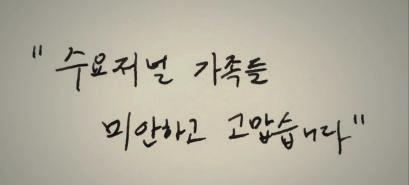 "수요저널 가족들
미안하고 고맙습니다"